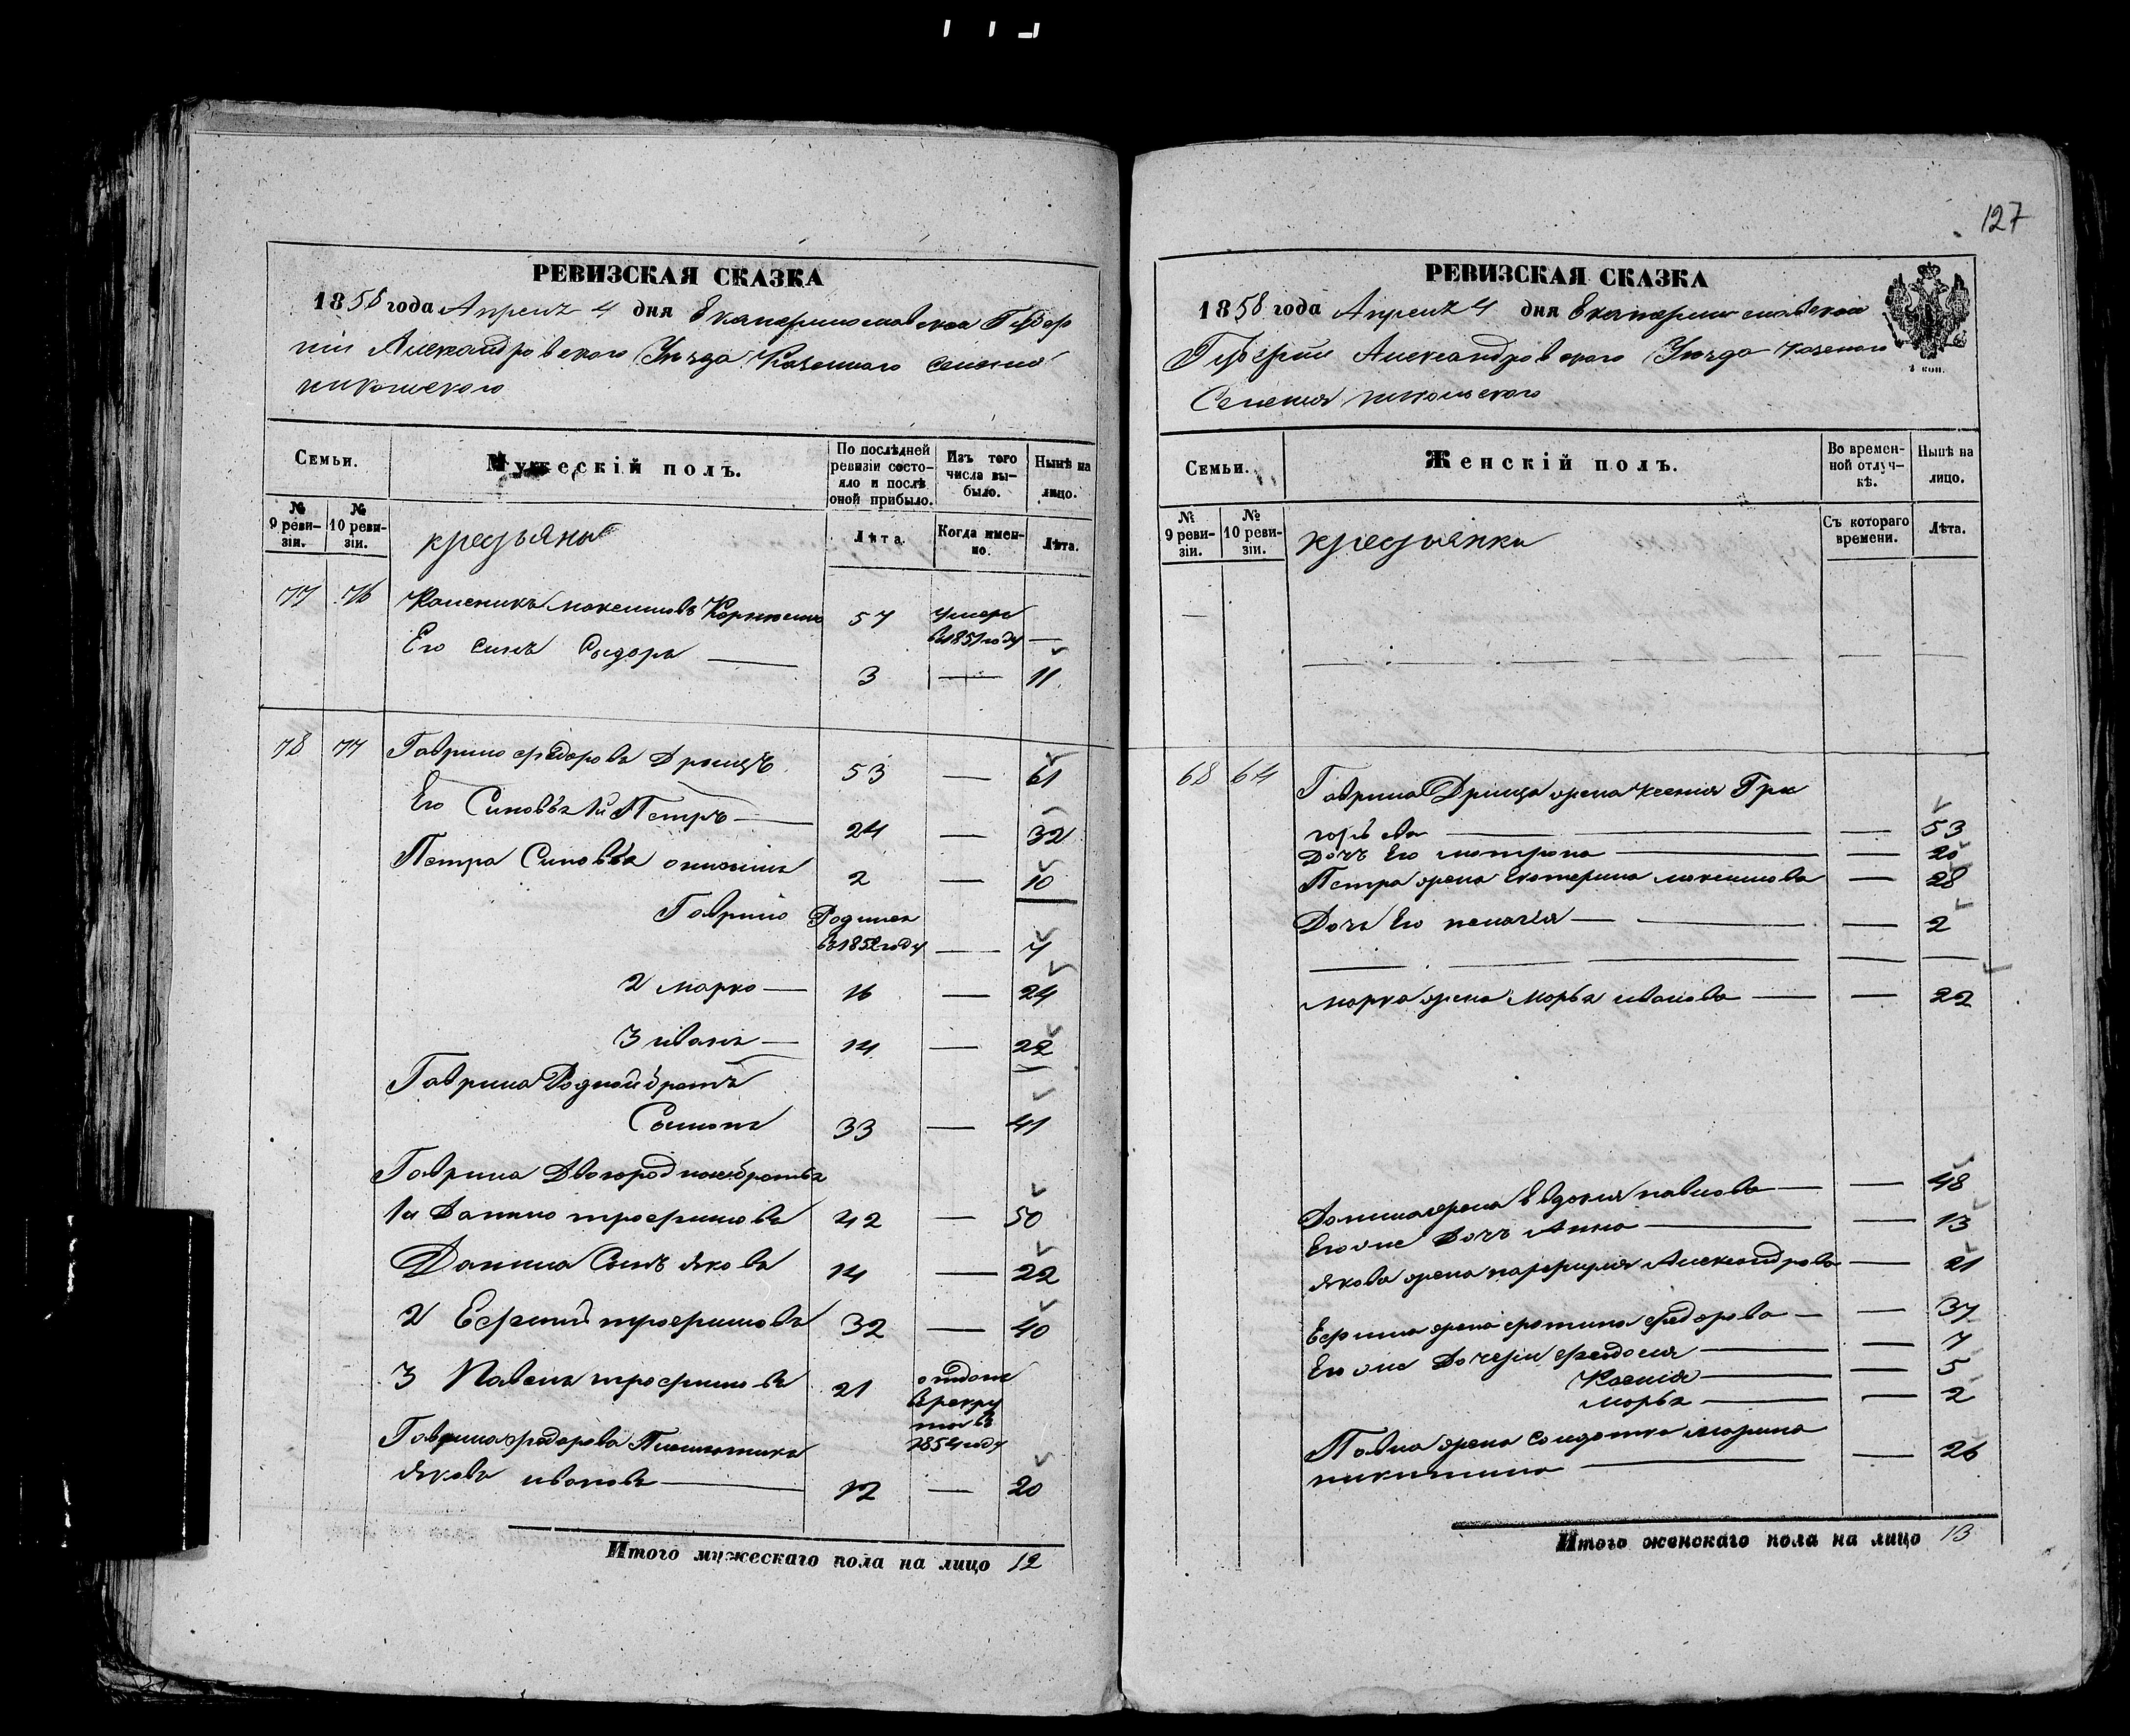 127
РЕВИЗСКАЯ СКАЗКА
1858 года Апреля 4 дня Екатеринославской Губер
нии Александровского Уезда Казенного селения
никольского
Семьи.
Мужескій полъ.
По послѣдней ревизіи состояло и послѣ оной прибыло.
Изъ того числа выбыло.
Нынѣ на лицо.
№ 9 ревизіи.
№ 10 ревизіи.
крестьяны
Лѣта.
Когда именно.
Лѣта.
77 76 Каленикъ максимовъ 57 умеръ в 1851 году —
Его синъ Сидоръ — 3 — 11
78 77 Гаврило федоровъ Дрыщъ 53 — 61
Его Синовья 1й Петръ — 24 — 32
Петра Синовья онисимъ 2 — 10
Гаврило Родился в 1852 году — 7
2 марко — 16 — 24
3 иванъ — 14 — 22
Гаврила Родной братъ
Семенъ 33 — 41
Гаврила Двоюродные братья
1й Данило трофимовъ 42 — 50
Данила Сынъ яковъ 14 — 22
2 Ефимъ трофимовъ 32 — 40
3 Павелъ трофимовъ 21 отданъ в рекруты въ 1854 году
Гаврила федорова Племянникъ
яковъ ивановъ — 12 — 20
Итого мужескаго пола на лицо 12
РЕВИЗСКАЯ СКАЗКА
1858 года Апреля 4 дня Екатеринославской
Губернии Александровского Уезда казеного
Селения никольского
4 коп.
Семьи.
Женскій полъ.
Во временной отлучкѣ.
Нынѣ на лицо.
№ 9 ревизіи.
№ 10 ревизіи.
крестьянки
Съ котораго времени.
Лѣта.
68 64 Гаврила Дрища жена ксения Гри
горьева — — 53
Дочь Его матрона — — 20
Петра жена Екатерина максимова — 28
Дочь Его пелагея — — 2
марка жена марья иванова — — 22
Данила жена Евдокия павлова — — 48
Его же Дочь Анна — — 13
якова жена парфирия Александрова — 21
Ефима жена фотина федорова — — 37
Его же Дочери федосия — — 7
Ксения — — 5
марья — — 2
Павла жена Солдатка марина
никитина — — 26
Итого женскаго пола на лицо 13